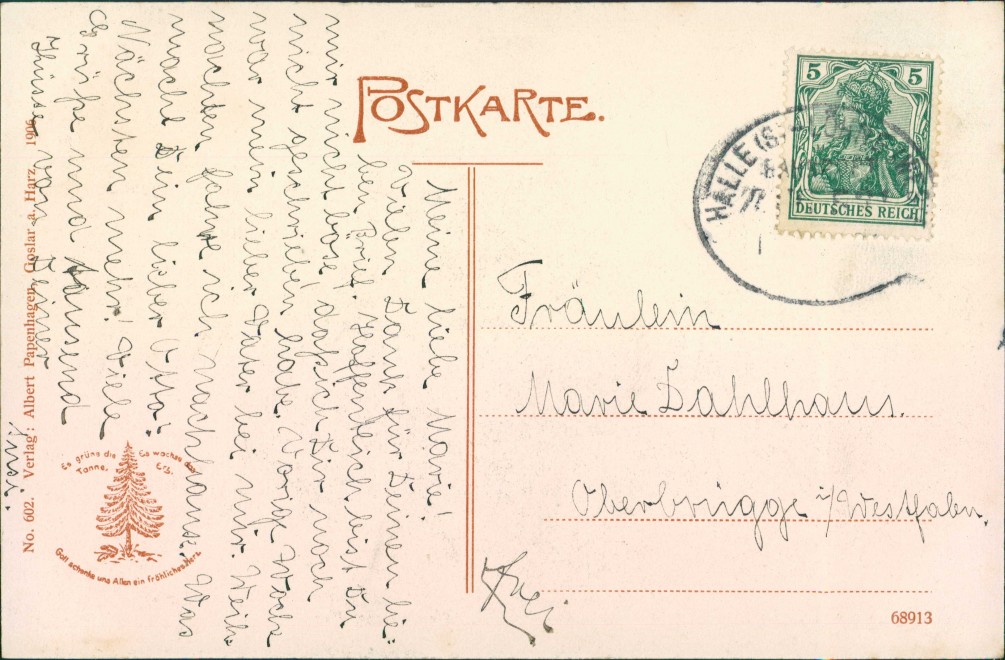 POSTKARTE.
5 5
DEUTSCHES REICH
HALLE (S.)
Fräulein
Marie Dahlhaus.
Oberbrügge i/Westfalen.
Frei
68913
Meine liebe Marie!
Vielen Dank für Deinen lie-
ben Brief. Hoffentlich bist Du
mir nicht böse, daß ich Dir noch
nicht geschrieben habe. Vorige Woche
war mein lieber Vater bei mir. Weih-
nachten fahre ich nach Hause. Was
macht Dein lieber Otto?
Nächstens mehr! Viele
Grüße und tausend
Küsse von Deiner
Es grüne die Tanne,
Es wachse das Erz,
Gott schenke uns Allen ein fröhliches Herz.
No. 602. Verlag: Albert Papenhagen, Goslar a. Harz. 1906